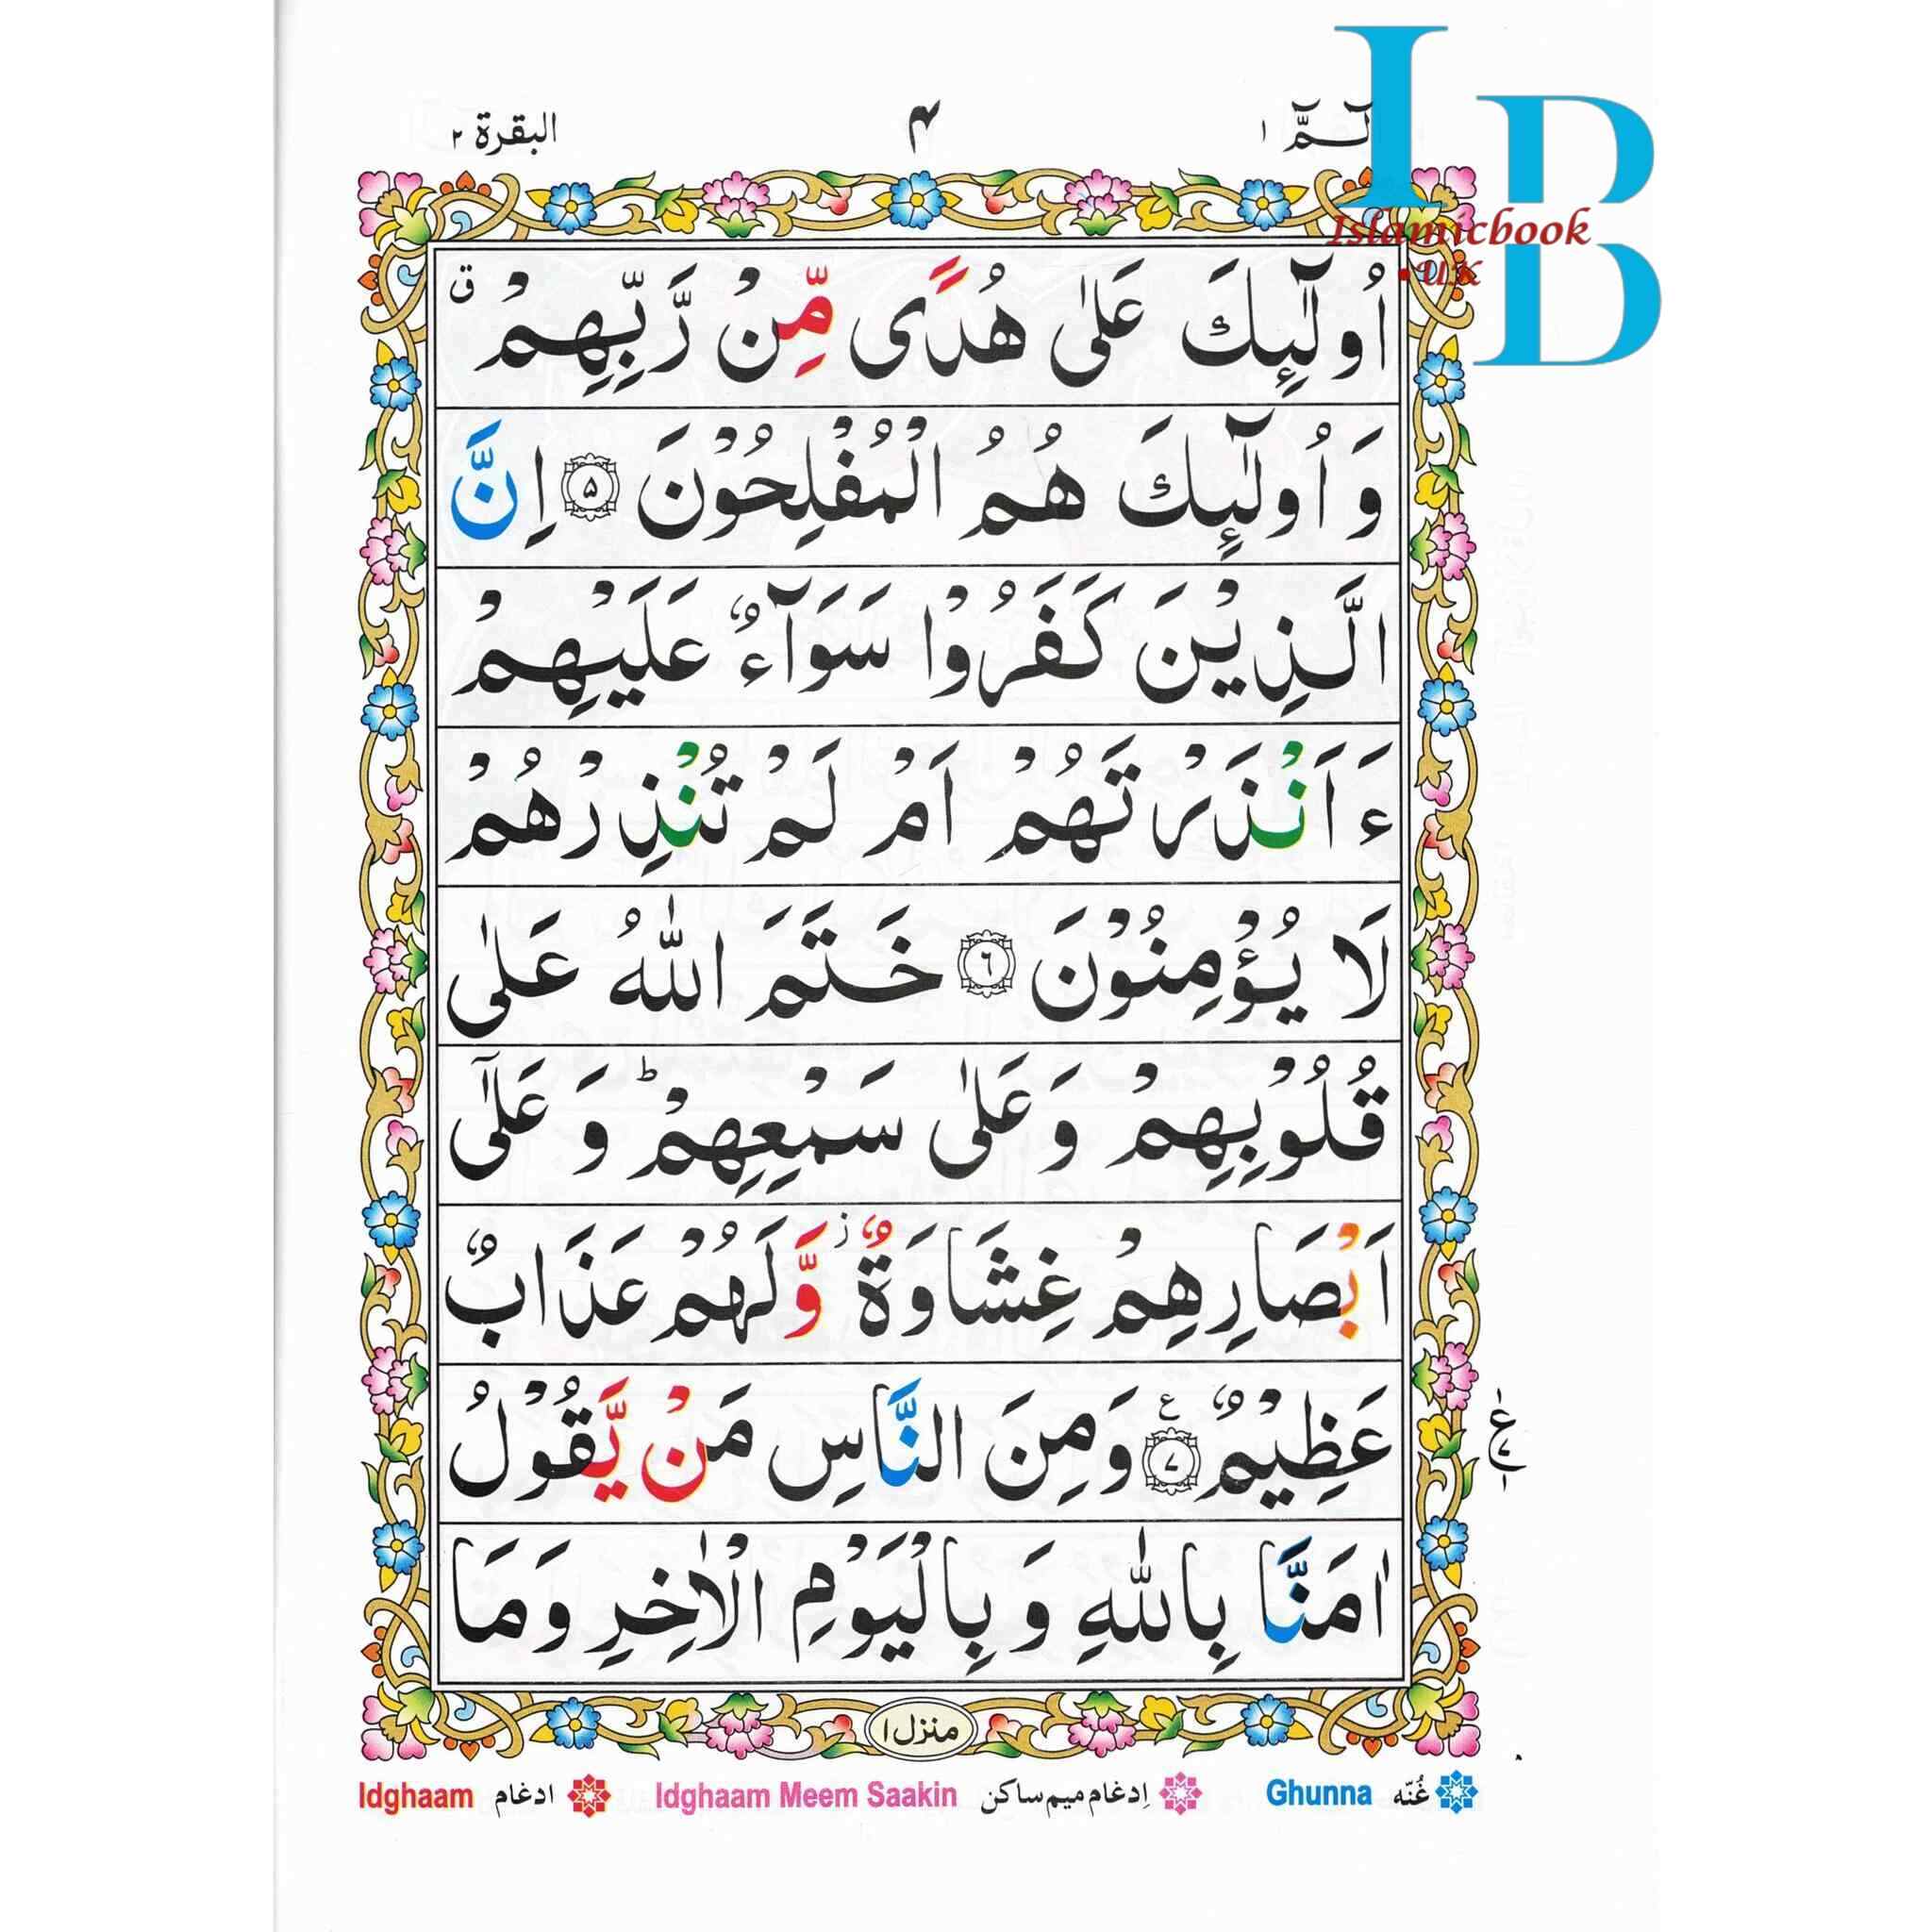 الٓمّٓ ١
۴
البقرة ٢
IBD
Islamicbook
.UK
اُولٰٓئِكَ عَلٰی هُدًی مِّنْ رَّبِّهِمْ ق
وَ اُولٰٓئِكَ هُمُ الْمُفْلِحُوْنَ ۵ اِنَّ
الَّذِیْنَ كَفَرُوْا سَوَآءٌ عَلَیْهِمْ
ءَاَنْذَرْتَهُمْ اَمْ لَمْ تُنْذِرْهُمْ
لَا یُؤْمِنُوْنَ ٦ خَتَمَ اللّٰهُ عَلٰی
قُلُوْبِهِمْ وَ عَلٰی سَمْعِهِمْ ؕ وَ عَلٰۤی
اَبْصَارِهِمْ غِشَاوَةٌ ز وَّ لَهُمْ عَذَابٌ
عَظِیْمٌ ٧ ع وَمِنَ النَّاسِ مَنْ یَّقُوْلُ
اٰمَنَّا بِاللّٰهِ وَ بِالْیَوْمِ الْاٰخِرِ وَمَا
منزل ١
غُنّه Ghunna
اِدغام میم ساکن Idghaam Meem Saakin
ادغام Idghaam